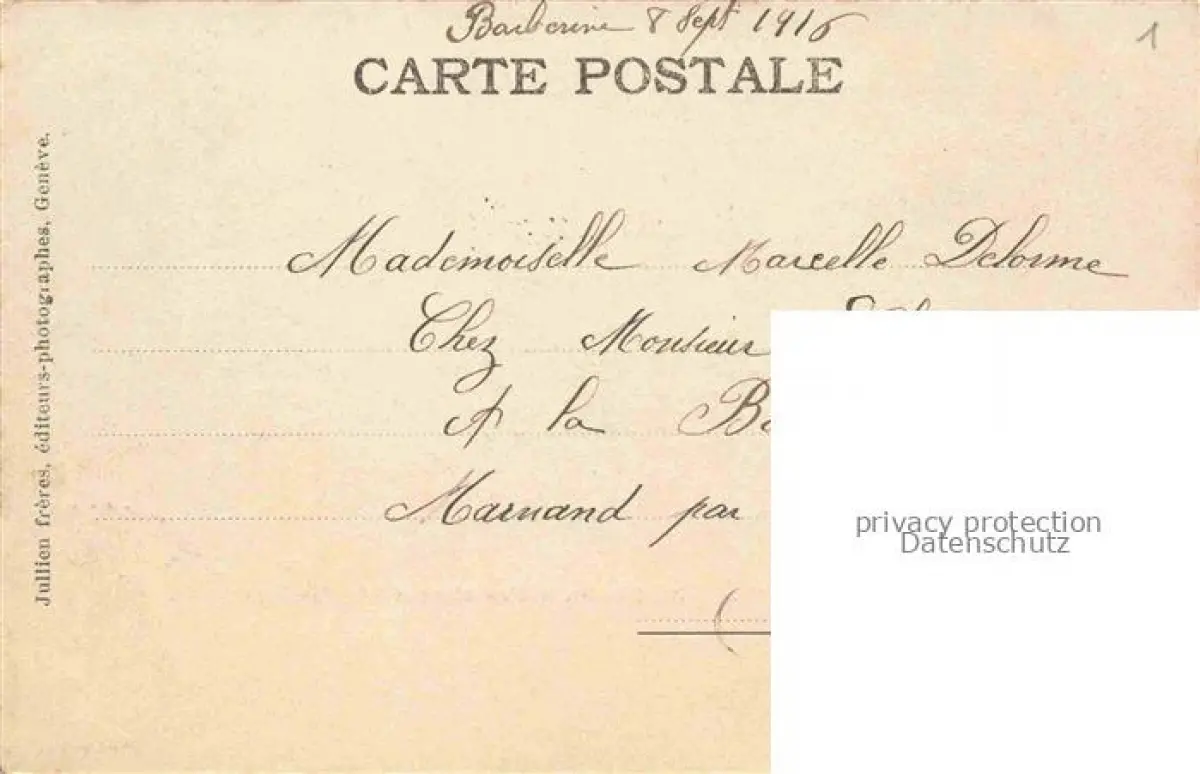 Barberine 8 Sept 1916
1
CARTE POSTALE
Jullien frères, éditeurs-photographes, Genève.
Mademoiselle Marcelle Delorme
Chez Monsieur
A la
Marnand par
privacy protection
Datenschutz